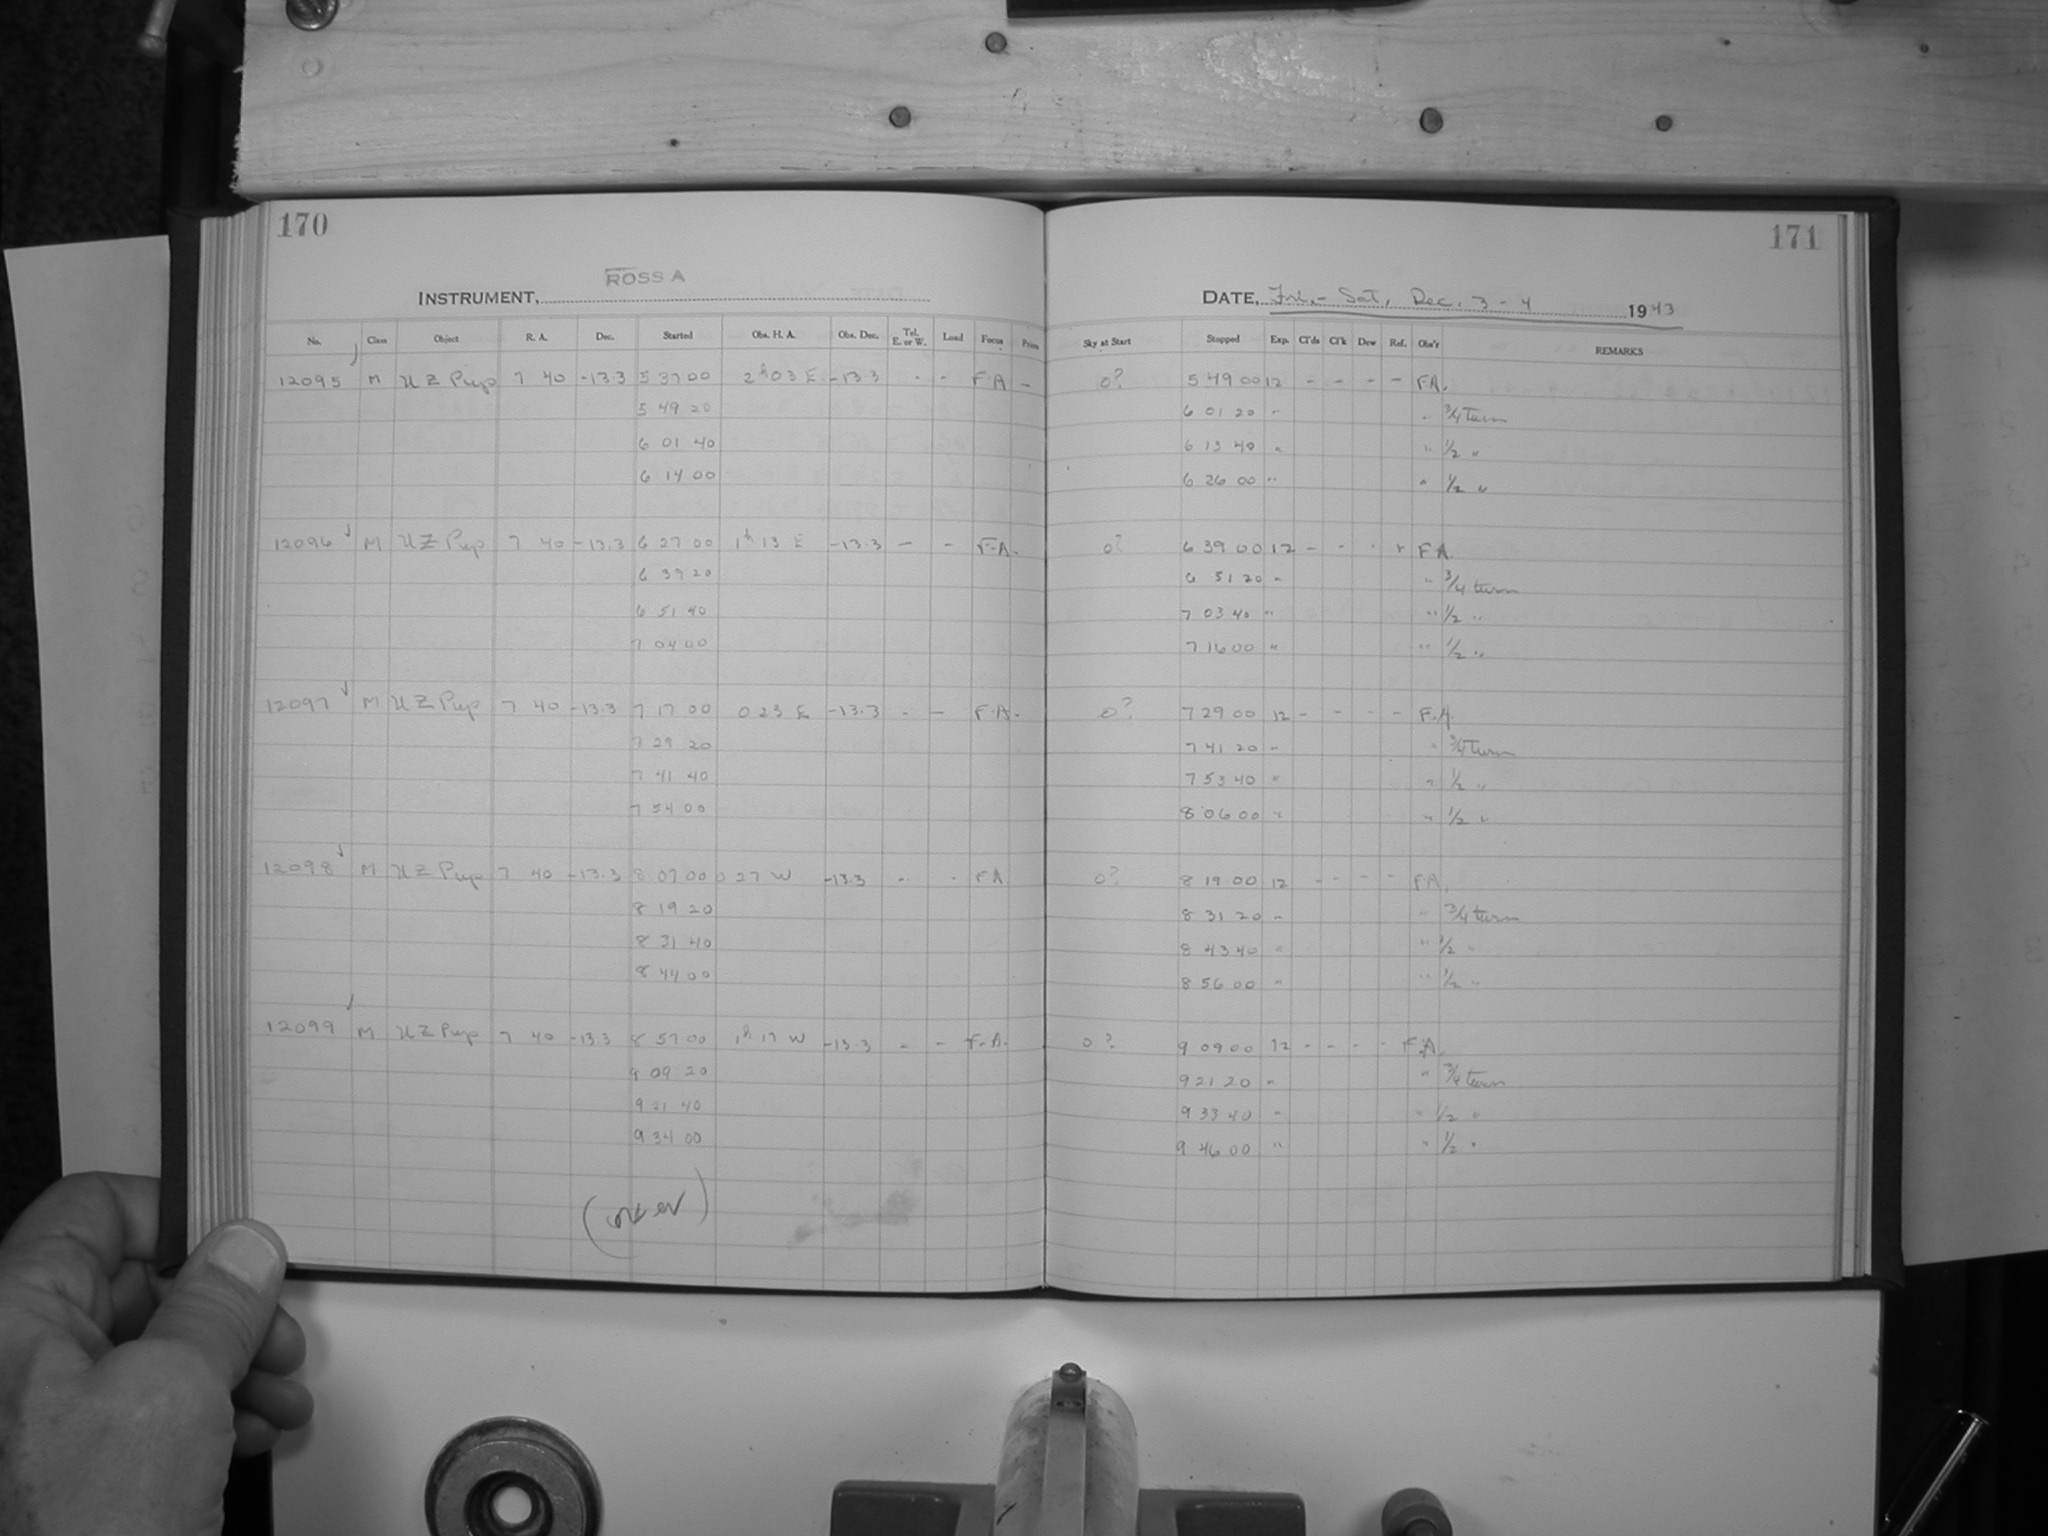 170
171
ROSS A
INSTRUMENT,
DATE, Fri. - Sat, Dec. 3 - 4 1943
No. Class Object R. A. Dec. Started Obs. H. A. Obs. Dec. Tel. E. or W. Load Focus Prism Sky at Start Stopped Exp. Cl'ds Cl'k Dew Ref. Obs'r REMARKS
12095 M UZ Pup 7 40 -13.3 5 37 00 2h 03 E -13.3 - - F.A - 0? 5 49 00 12 - - - - F.A.
5 49 20 6 01 20 " " 3/4 turn
6 01 40 6 13 40 " " 1/2 "
6 14 00 6 26 00 " " 1/2 "
12096 M UZ Pup 7 40 -13.3 6 27 00 1h 13 E -13.3 - - F.A. 0? 6 39 00 12 - - - F.A.
6 39 20 6 51 20 " " 3/4 turn
6 51 40 7 03 40 " " 1/2 "
7 04 00 7 16 00 " " 1/2 "
12097 M UZ Pup 7 40 -13.3 7 17 00 0 23 E -13.3 - - F.A. 0? 7 29 00 12 - - - - F.A
7 29 20 7 41 20 " " 3/4 turn
7 41 40 7 53 40 " " 1/2 "
7 54 00 8 06 00 " " 1/2 "
12098 M UZ Pup 7 40 -13.3 8 07 00 0 27 W -13.3 - - F.A 0? 8 19 00 12 - - - - F.A.
8 19 20 8 31 20 " " 3/4 turn
8 31 40 8 43 40 " " 1/2 "
8 44 00 8 56 00 " " 1/2 "
12099 M UZ Pup 7 40 -13.3 8 57 00 1h 17 W -13.3 - - F.A. 0? 9 09 00 12 - - - - F.A.
9 09 20 9 21 20 " " 3/4 turn
9 21 40 9 33 40 " " 1/2 "
9 34 00 9 46 00 " " 1/2 "
(over)